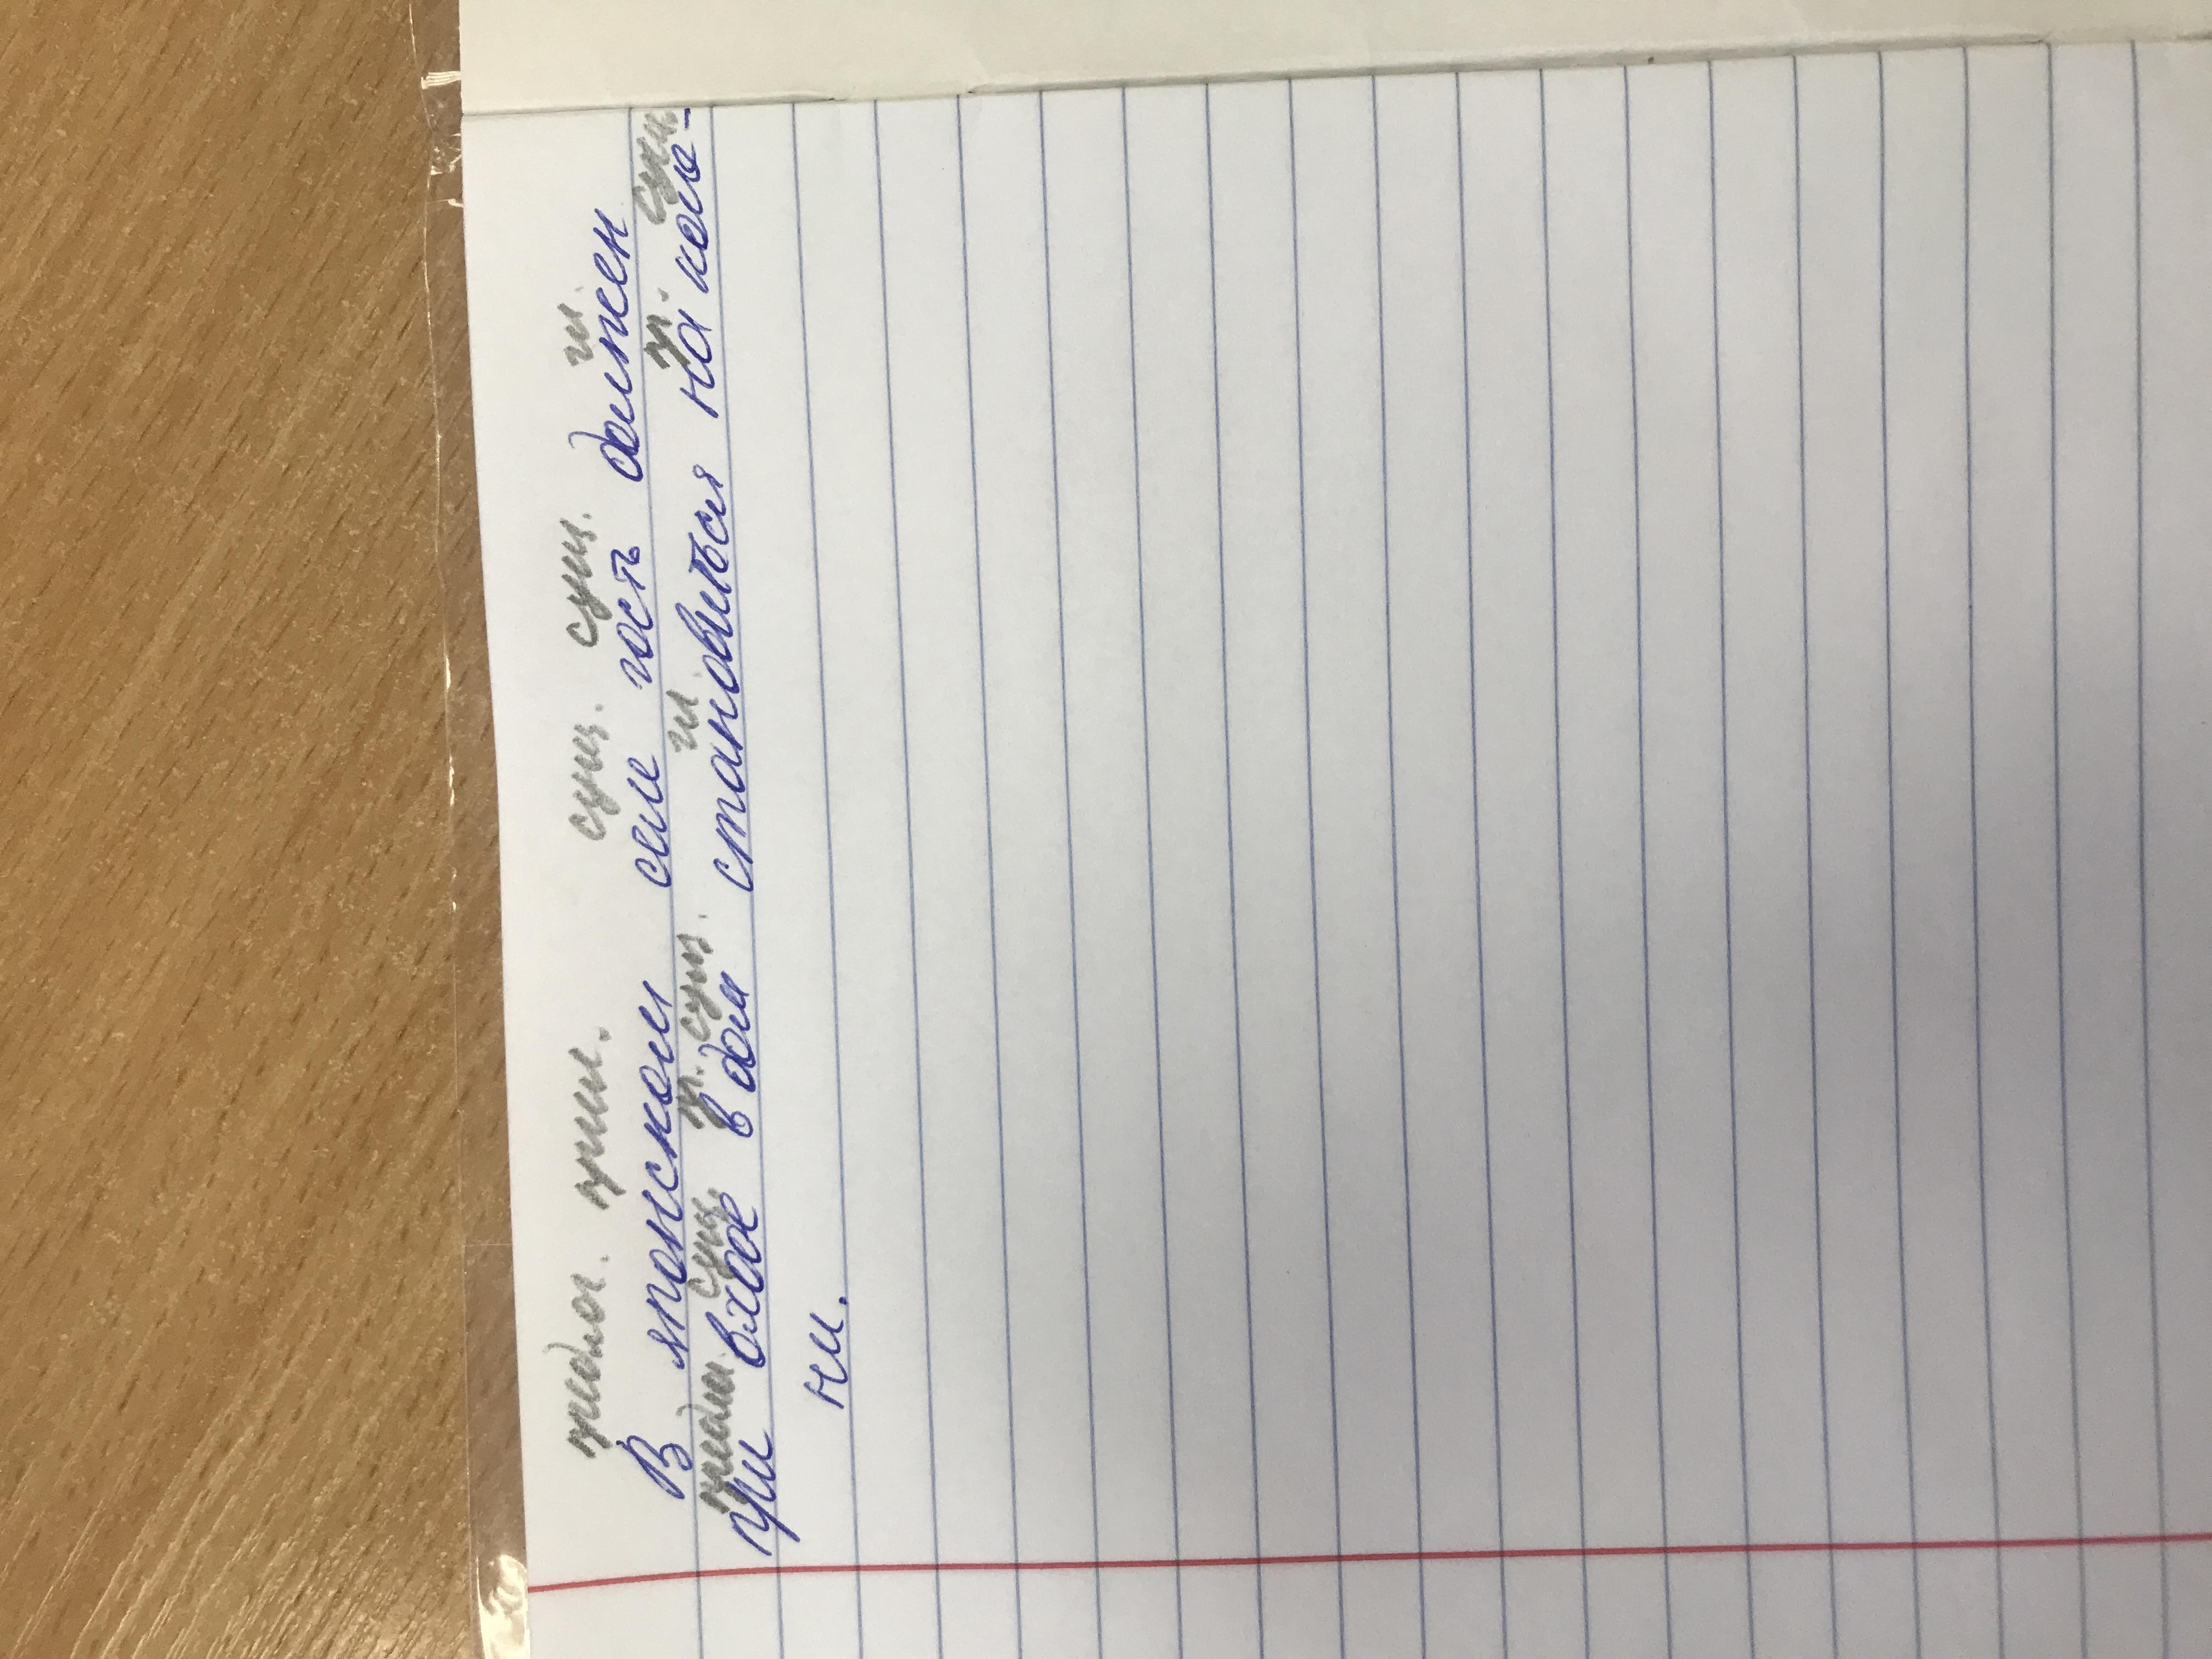 предлог. прил. сущ. сущ. гл.
В японском селе гость должен
предлог. сущ. пр. сущ. гл. пр. сущ.
при входе в дом становиться на коле-
ни.